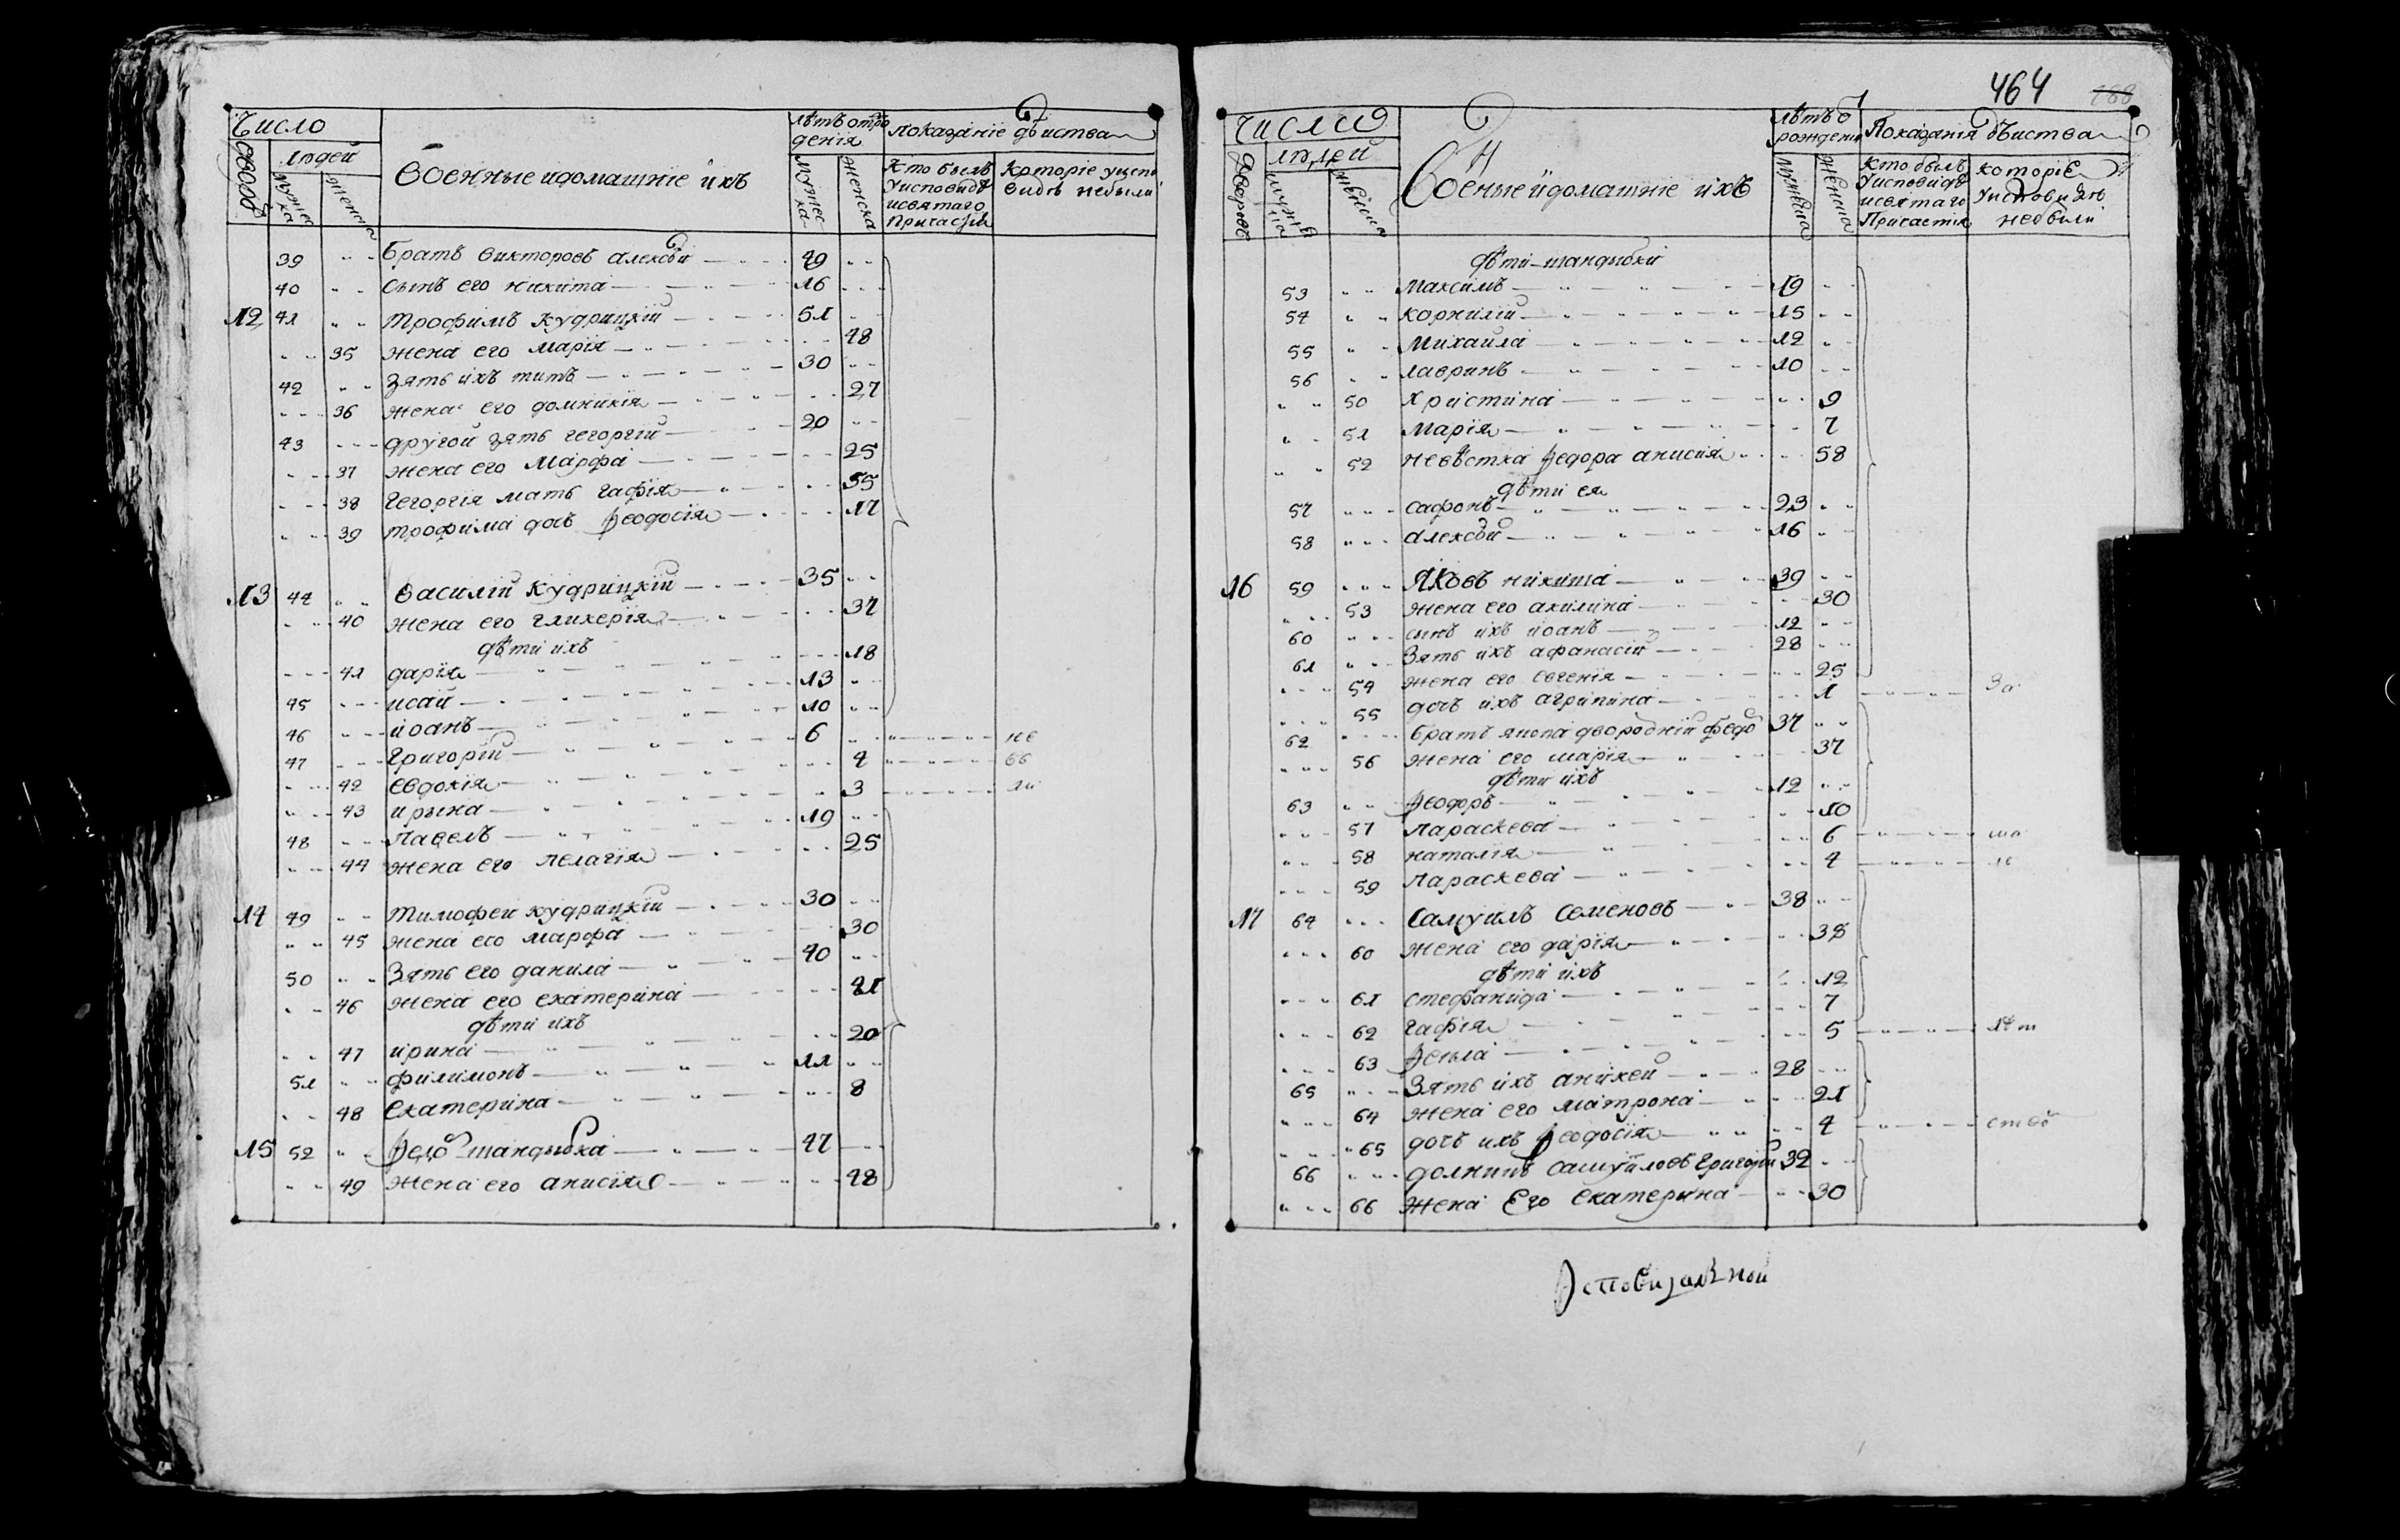 Число
людей
дворовъ
мужеска
женска
Военные и домашніе ихъ
лѣтъ от рождения
мужеска
женска
показаніе дѣиства
Кто былъ у исповиди и святаго Причастія
Которіе у исповидѣ не были
39 Братъ викторовъ алексѣй 49
40 сынъ его никита 16
12 41 трофимъ кудрицкій 51
35 жена его марія 48
42 зять ихъ титъ 30
36 жена его домникія 27
43 другой зять гегоргій 20
37 жена его марфа 25
38 гегоргія мать гафія 55
39 трофима дочъ феодосія 17
13 44 василій кудрицкій 35
40 жена его гликерія 37
дѣти ихъ
41 дарія 18
45 исай 13
46 іоанъ 10
47 григорій 6 не
42 евдокія 4 бы
43 ирына 3 ли
48 павелъ 19
44 жена его пелагія 25
14 49 тимофей кудрицкій 30
45 жена его марфа 30
50 зять его данила 40
46 жена его екатерина 41
дѣти ихъ
47 ирина 20
51 филимонъ 11
48 екатерина 8
15 52 федо шандыбка 47
49 жена его анисія 48
464 188
Число
людей
дворовъ
мужеска
женска
Военные и домашніе ихъ
лѣтъ о рождения
мужеска
женска
Показанія дѣиства
Кто былъ у исповидѣ и святаго Причастія
которіе у исповидѣ не были
дѣти шандыбки
53 максимъ 19
54 корнилій 15
55 михайла 12
56 лавринъ 10
50 христина 9
51 марія 7
52 невѣстка федора анисія 58
дѣти ея
57 сафонъ 23
58 алексѣй 16
16 59 яковъ никита 39
53 жена его акилина 30
60 сынъ ихъ іоанъ 12
61 зять ихъ афанасій 28
54 жена его евгенія 25
55 дочъ ихъ агрипина 1 за
62 братъ якова двородній федо 37
56 жена его марія 37
дѣти ихъ
63 феодоръ 12
57 параскева 10
58 наталія 6 ма
59 параскева 4 ло
17 64 самуилъ семеновъ 38
60 жена его дарія 38
дѣти ихъ
61 стефанида 12
62 гафія 7
63 фекла 5 лѣт
65 зять ихъ аникей 28
64 жена его матрона 21
65 дочъ ихъ феодосія 4 ство
66 долникъ самуйловъ григорій 32
66 жена его екатерина 30